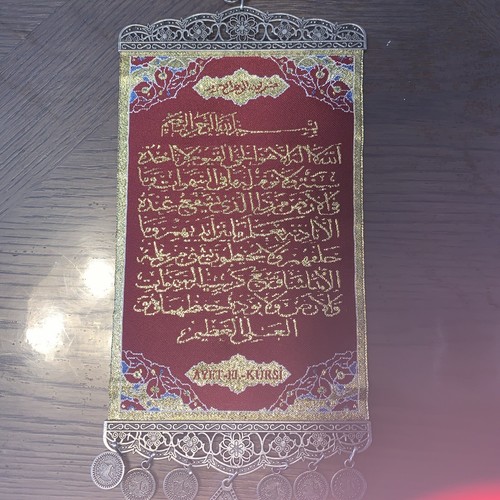 بسم الله الرحمن الرحيم
الله لا اله الا هو الحي القيوم لا تاخذه
سنة ولا نوم له ما في السموات وما
في الارض من ذا الذي يشفع عنده
الا باذنه يعلم ما بين ايديهم وما
خلفهم ولا يحيطون بشئ من علمه
الا بما شاء وسع كرسيه السموات
والارض ولا يؤده حفظهما وهو
العلي العظيم
AYET-EL-KÜRSİ